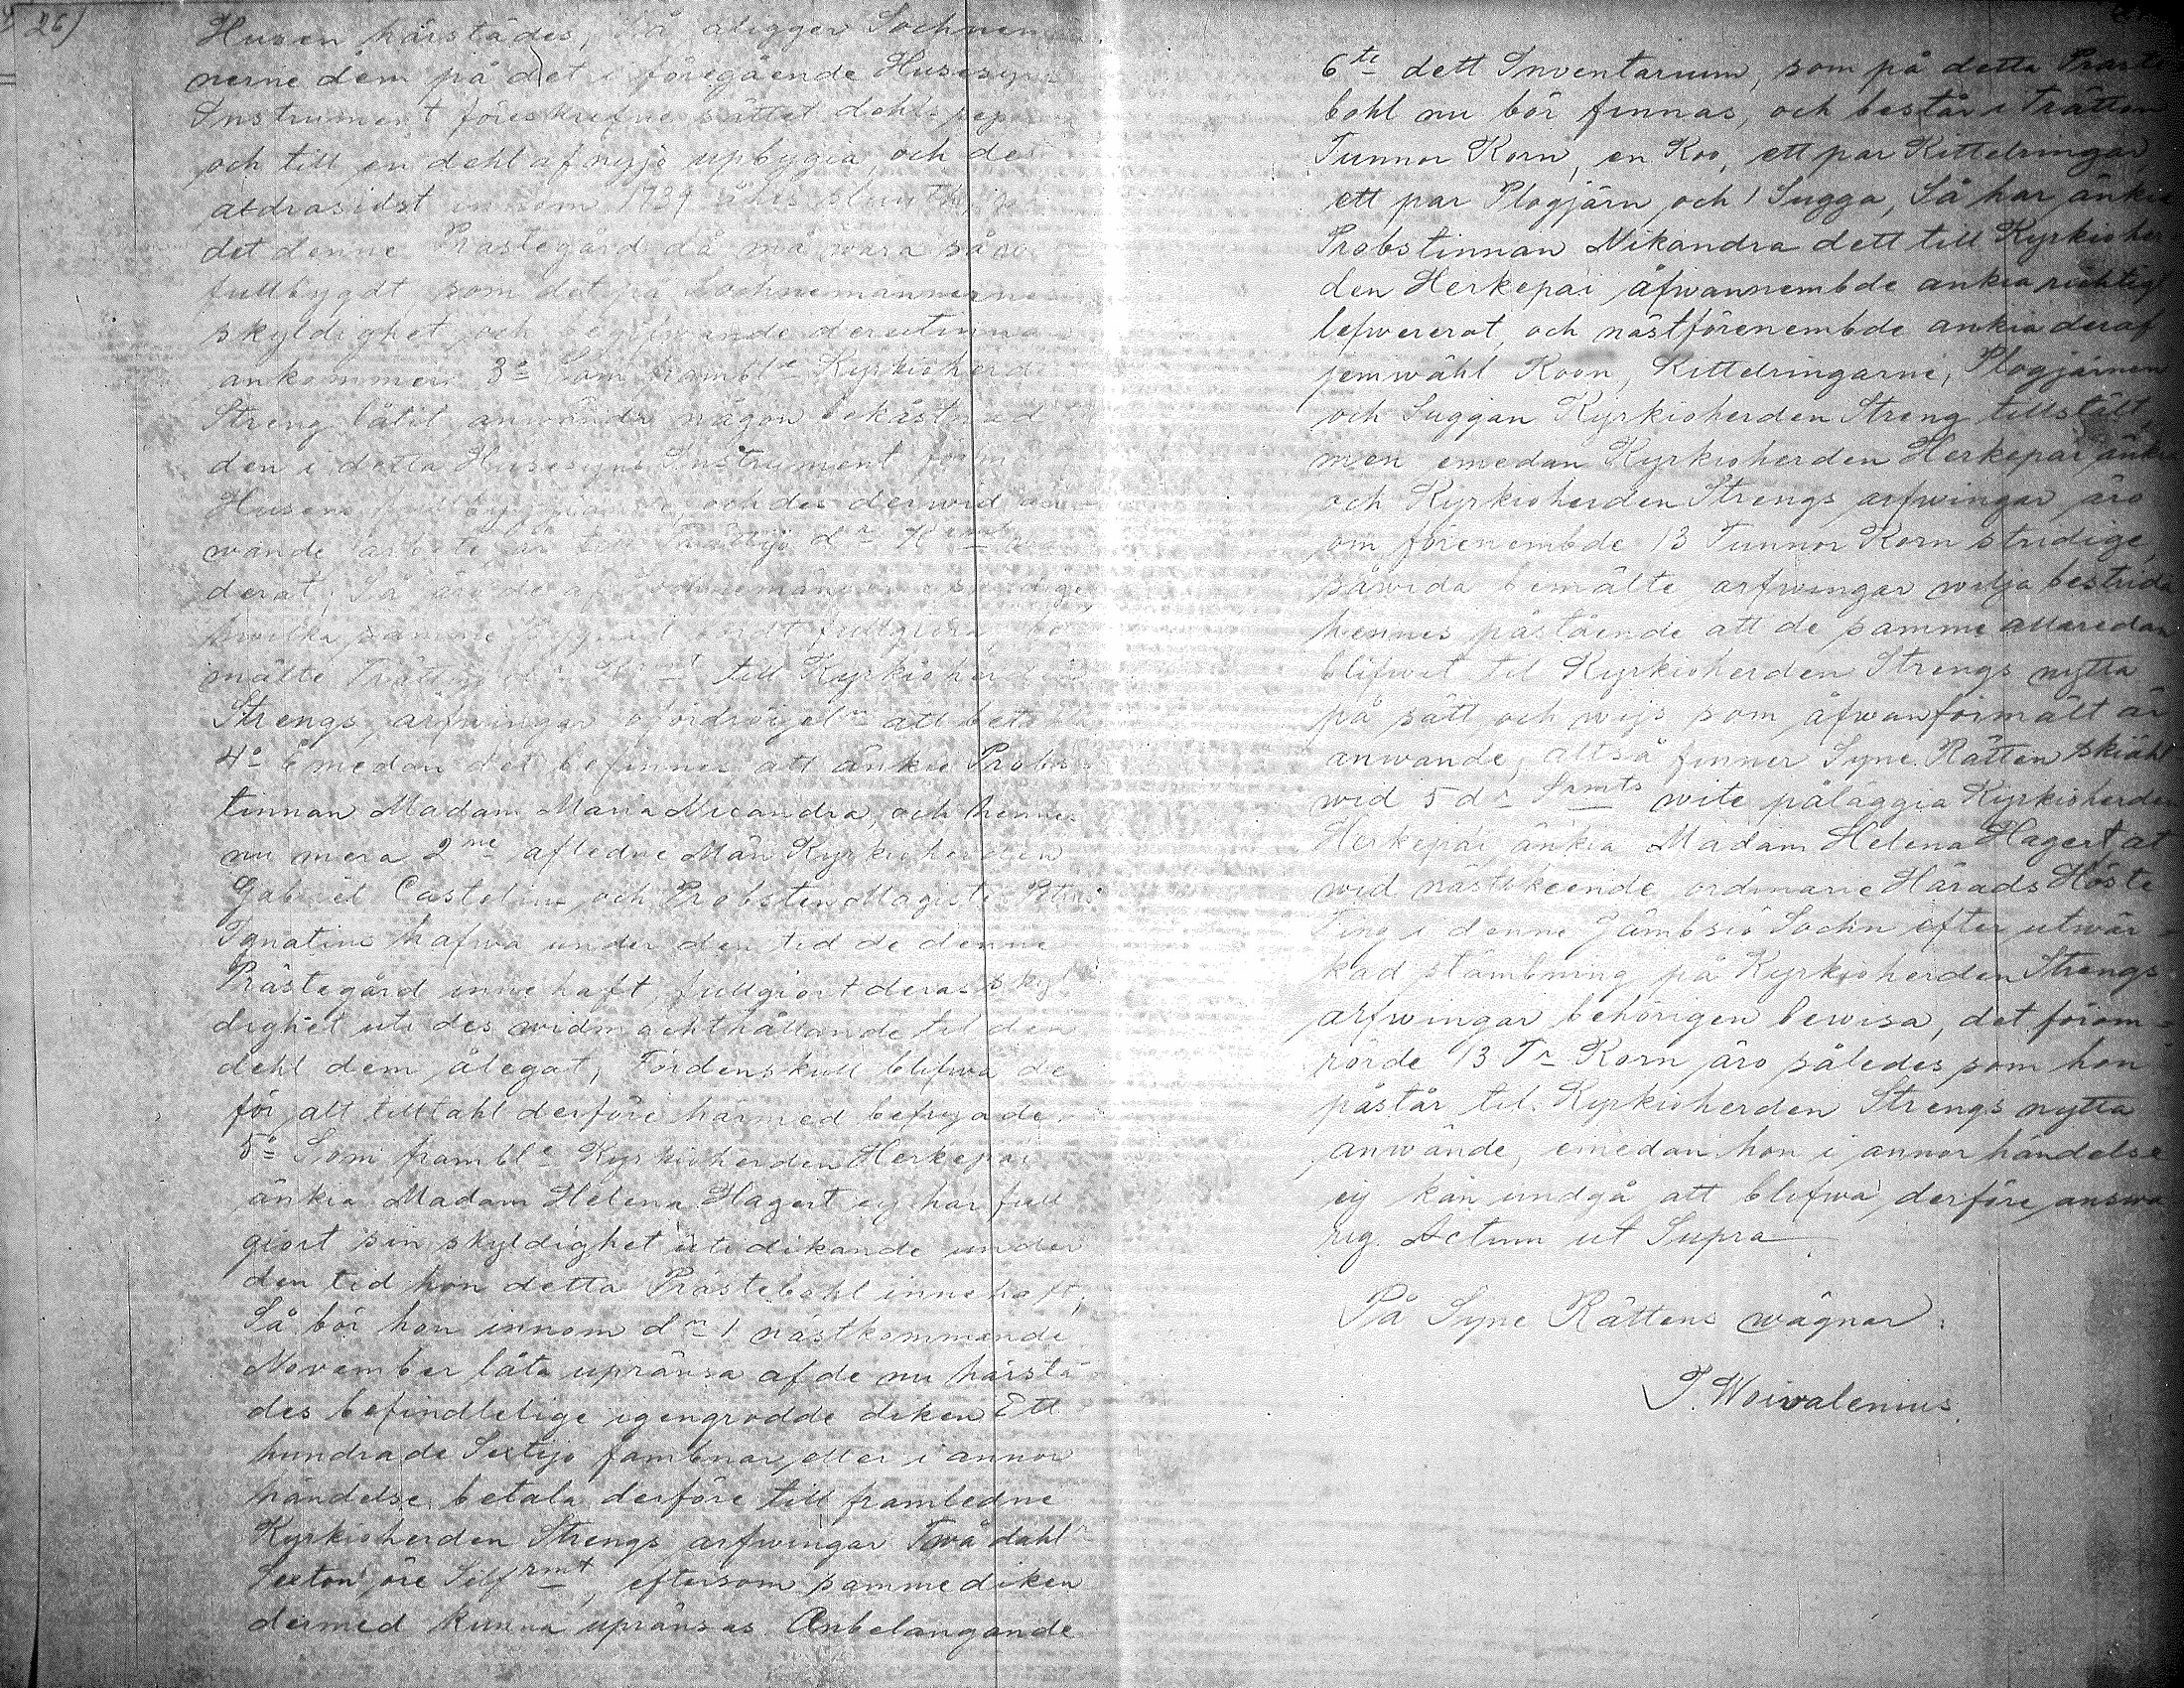 26)
Husen härstädes, så åligger Sochnem
nerne dem på det i föregående Husesyns
Instrument föreskrefne sättet dehls rep
och till en dehl af nyjo upbyggia, och de
aldrasidst innom 1739 åhrs slut
det denne Prästegård då må wara så
fullbygdt, som det på Sochnemännernes
skyldighet och derutinnan
ankommer. 3o Som frambln Kyrkioherde
Streng låtit använda någon bekåstnad
den i detta Husesyns Instrument
Husens och des derwid an
wände arbete är till dr
derat; Så äro de af Sochnemännerne
hwilka samme fullgiöra, be
mälte till Kyrkioherden
Strengs arfwingar ofördröijeln att betahla
4o Emedan det befinnes att änkie Probs
tinnan Madam Maria Nicandra, och hennes
nu mera 2ne afledne Män Kyrkioherden
Gabriel Castelius, och Probsten Magister Petrus
Ignatius hafwa under den tid de denne
Prästegård innehaft, fullgiort deras skyl
dighet uti des widmachthållande til den
dehl dem ålegat, Fördenskull blifwa de
för alt tilltahl derföre härmed befryade.
5o Som framble Kyrkioherden Herkepæi
änkia Madam Helena Hagert ey har full
giort sin skyldighet uti dikande under
den tid hon detta Prästebohl innehaft,
Så bör hon innom dn 1 nästkommande
November låta upränsa af de nu härstä
des befindtelige igengrodde diken Ett
hundrade Sextijo fambnar, eller i annor
händelse betala derföre till framledne
Kyrkioherden Strengs arfwingar Twå dahlr
Sexton öre Silfrmt, eftersom samme diken
dermed kunna upränsas. Anbelangande
6te dett Inventarium, som på detta Präste
bohl nu bör finnas, och består i Trätten
Tunnor Korn, en Koo, ett par Kittelringar,
ett par Plogjärn och 1 Sugga, Så har änkie
Probstinnan Nikandra dett till Kyrkioher
den Herkepæi åfwannembde ankia richtigt
lefwererat, och nästförenembde ankia deraf
jemwähl Koon, Kittelringarne, Plogjärnen
och Suggan Kyrkioherden Streng tillstält,
men emedan Kyrkioherden Herkepæi änkia
och Kyrkioherden Strengs arfwingar äro
om förenembde 13 Tunnor Korn stridige,
såwida bemälte arfwingar wilja bestrida
hennes påstående att de samme allaredan
blifwit til Kyrkioherden Strengs nytta
på sätt och wijs som åfwanförmält är
anwände, altså finner Syne Rätten skiähl
wid 5 dr Srmts wite påläggia Kyrkioherden
Herkepæi änkia Madam Helena Hagert at
wid nästskeende ordinarie Härads Höste
Ting i denne Jämbsiö Sochn efter utwär-
kad stämbning på Kyrkioherden Strengs
arfwingar behörigen bewisa, det förom-
rörde 13 Tr Korn äro således som hon
påstår til Kyrkioherden Strengs nytta
anwände, emedan hon i annor händelse
ey kan undgå att blifwa derföre answa
rig. Actum ut Supra
På Syne Rättens wägnar:
T. Woivalenius.